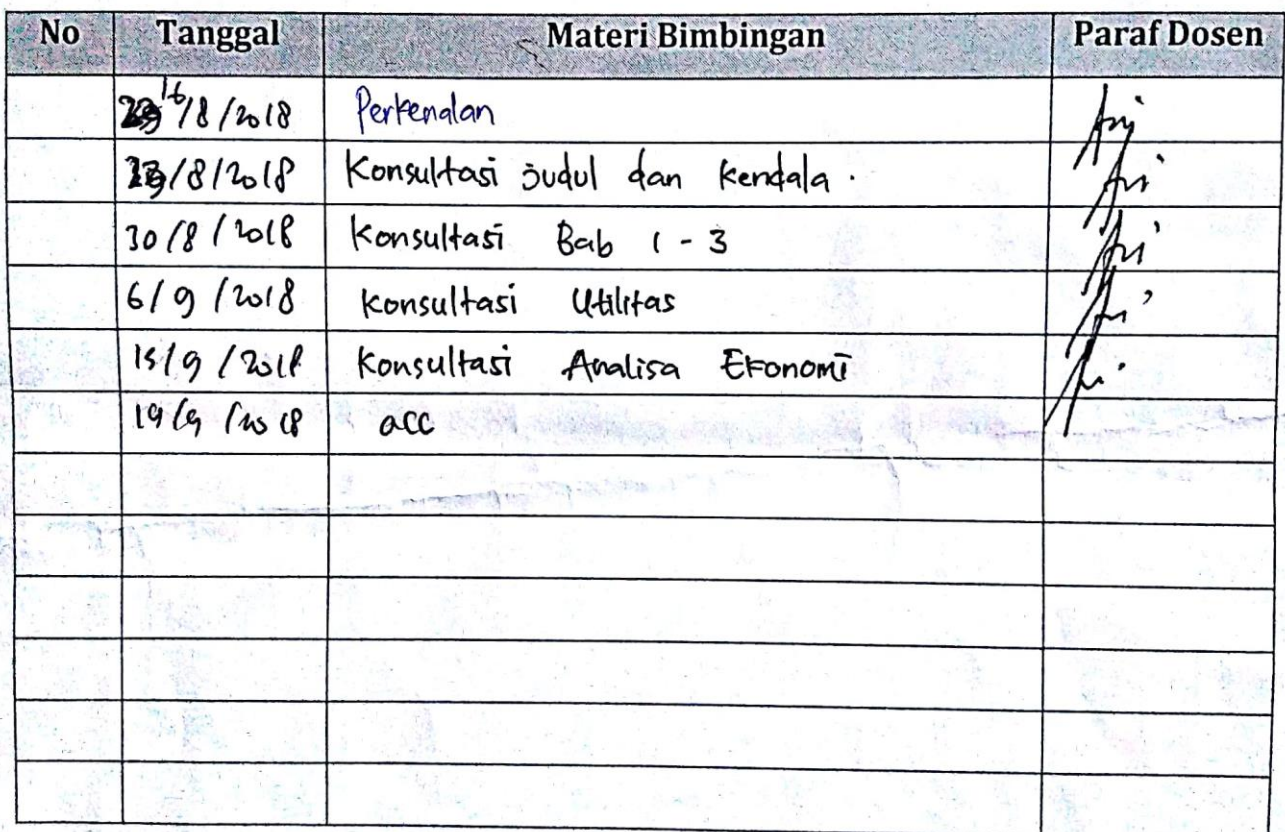 No Tanggal Materi Bimbingan Paraf Dosen
16/8/2018 Perkenalan
23/8/2018 Konsultasi Judul dan Kendala.
30/8/2018 Konsultasi Bab 1 - 3
6/9/2018 Konsultasi Utilitas
13/9/2018 Konsultasi Analisa Ekonomi
19/9/2018 acc